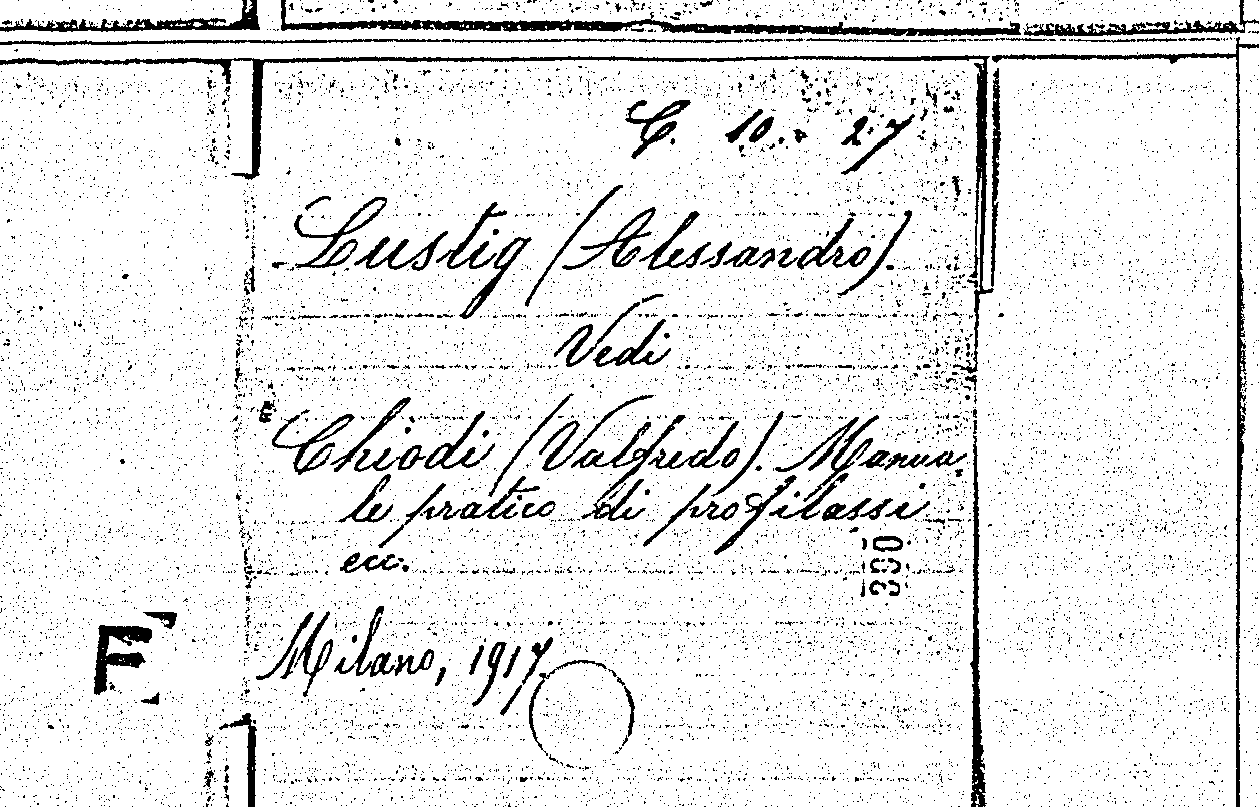 C. 10. 27
Lustig (Alessandro).
Vedi
Chiodi (Valfredo). Manua-
le pratico di profilassi
ecc.
Milano, 1917.
F